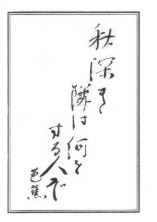 秋深き
隣は何を
する人ぞ
芭蕉